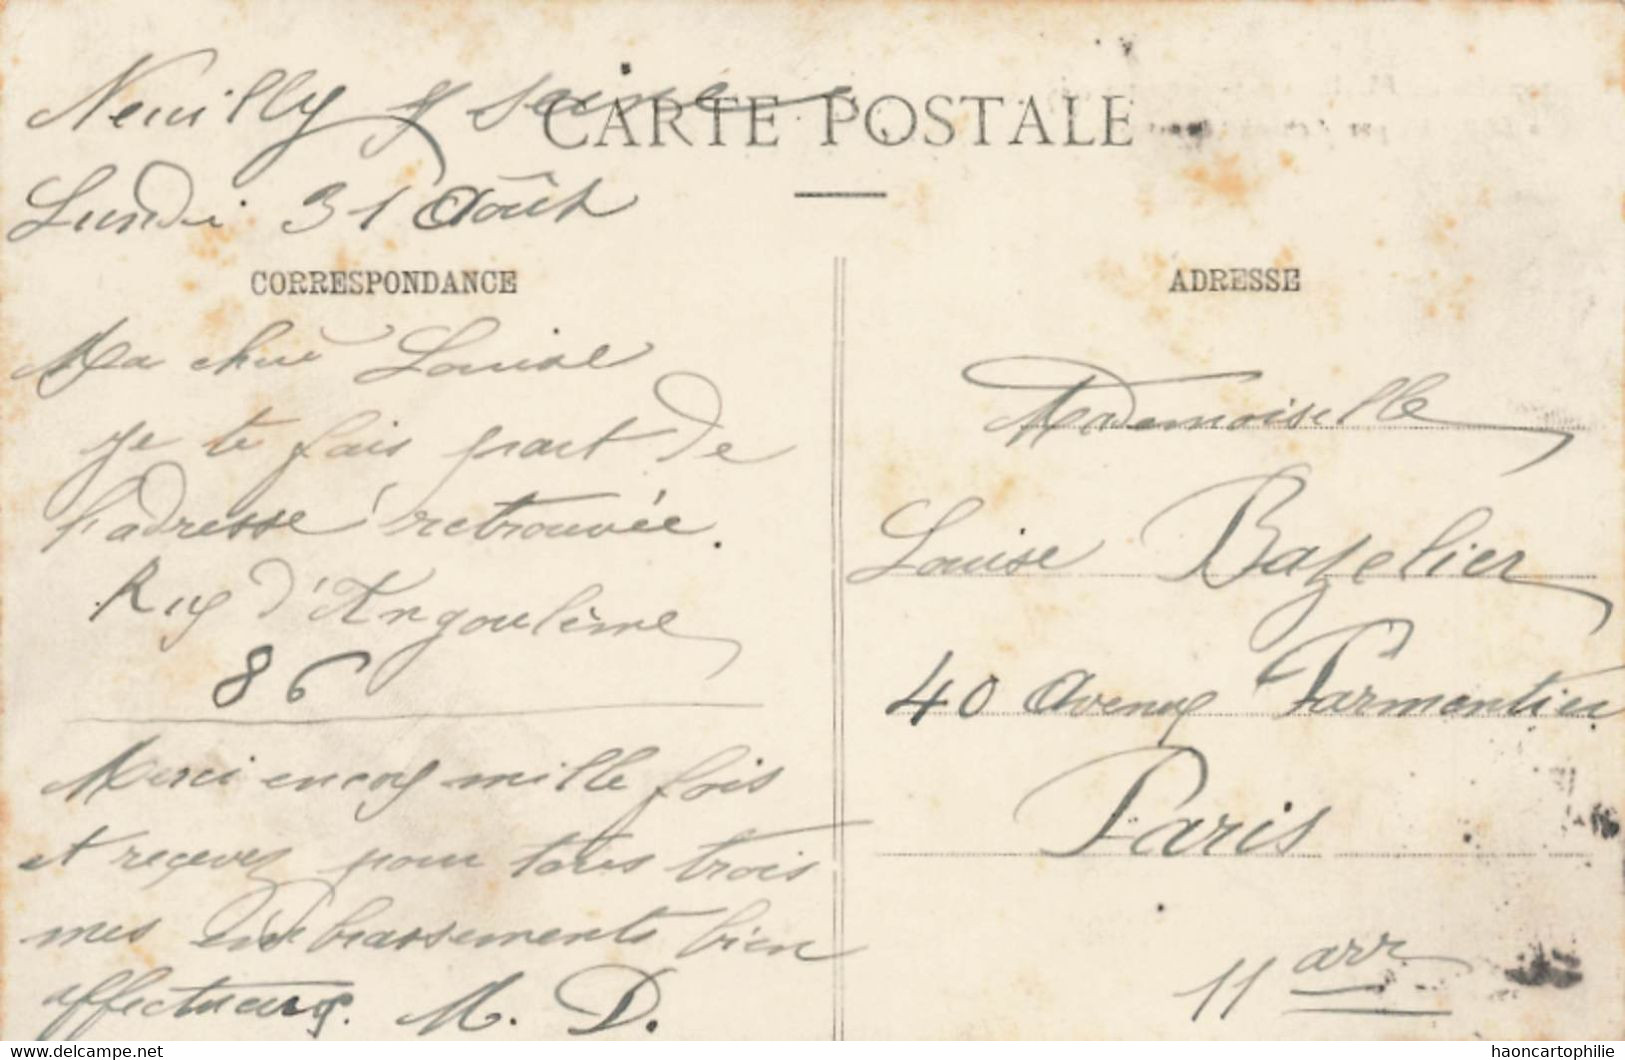 Neuilly s/ Seine
CARTE POSTALE
Lundi 31 Août
CORRESPONDANCE
Ma chère Louise
je te fais part de
l'adresse retrouvée.
Rue d'Angoulême
86
Merci encore mille fois
et recevez pour tous trois
mes embrassements bien
affectueux. M. D.
ADRESSE
Mademoiselle
Louise Bazelier
40 Avenue Parmentier
Paris
11 arr
www.delcampe.net
haoncartophilie